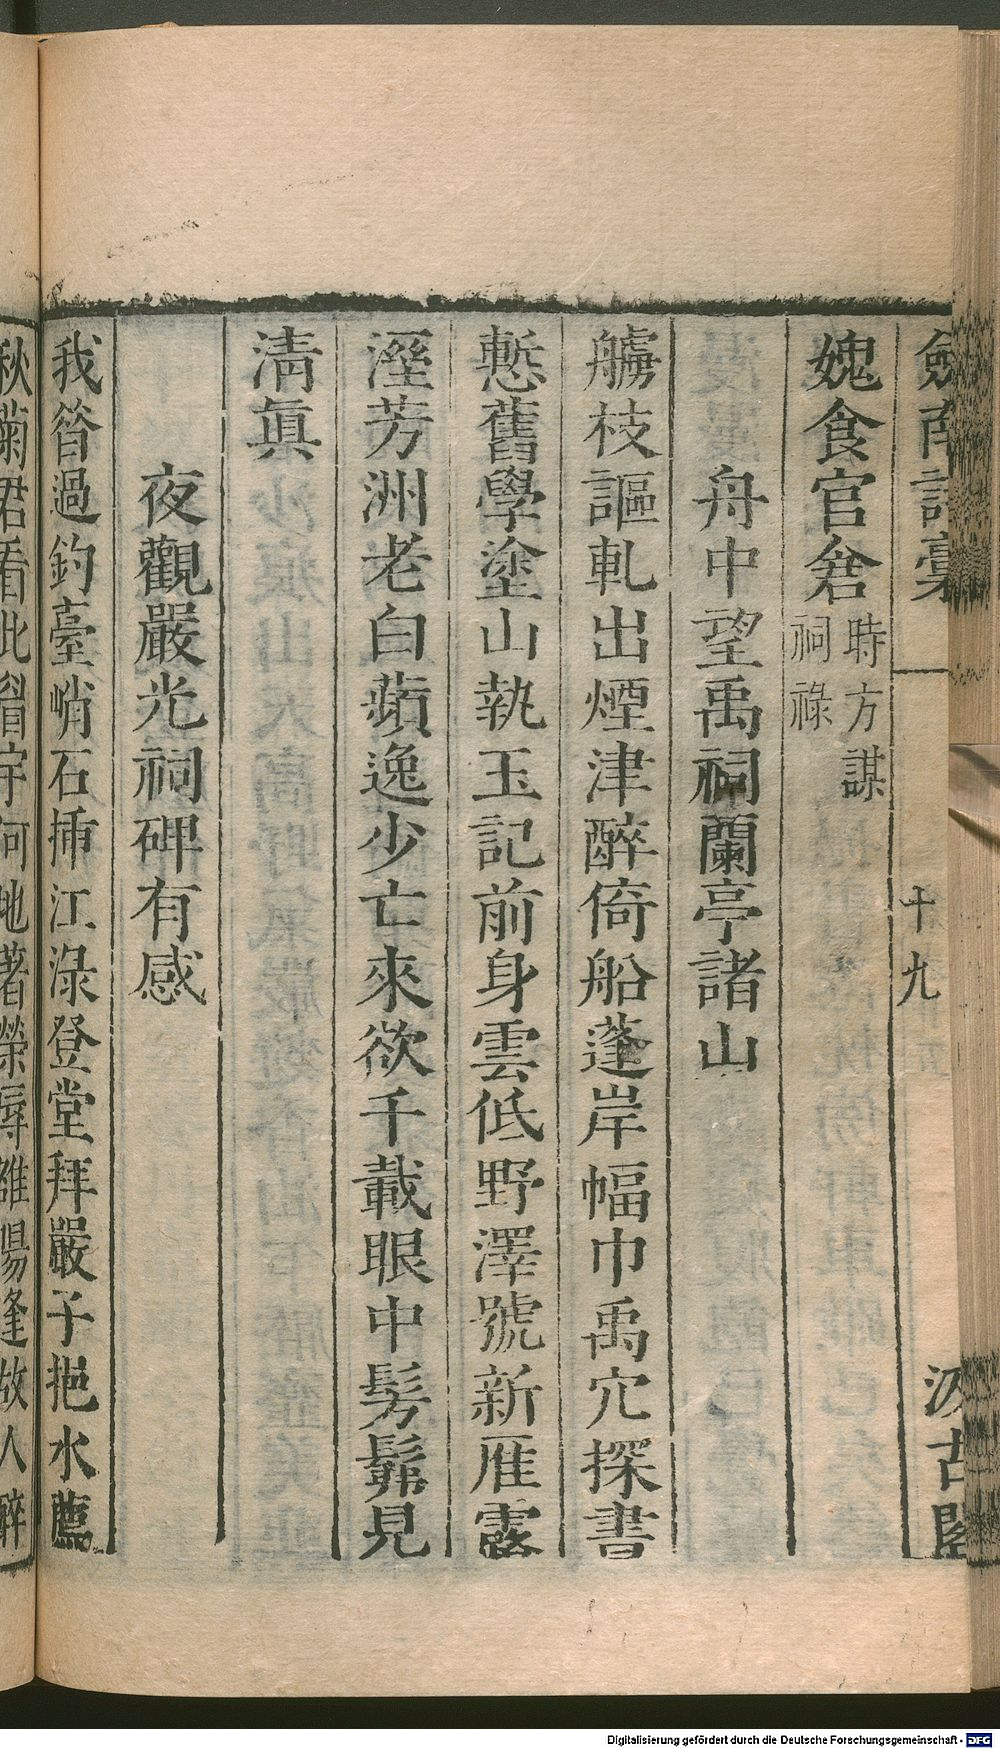 劎南詩藁
十九
汲古閣
媿食官倉時方謀祠祿
舟中望禹祠蘭亭諸山
艣枝謳軋出煙津醉倚船蓬岸幅巾禹穴探書
慙舊學塗山執玉記前身雲低野澤號新雁露
溼芳洲老白蘋逸少亡來欲千載眼中髣髴見
淸眞
夜觀嚴光祠碑有感
我昝過釣臺峭石揷江淥登堂拜嚴子挹水薦
秋菊君看此眉宇何地著榮辱雒陽逢故人醉
Digitalisierung gefördert durch die Deutsche Forschungsgemeinschaft - DFG